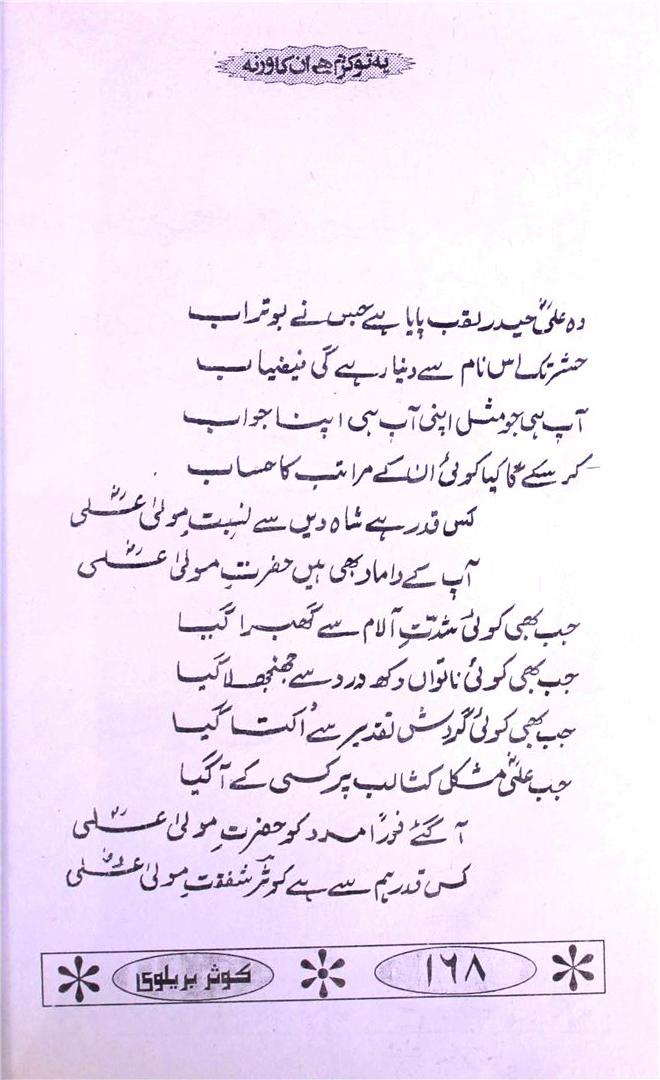 یہ تو کرم ہے ان کا ورنہ
وہ علیؓ حیدر لقب پایا ہے جس نے بوتراب
حشر تک اس نام سے دنیا رہے گی فیضیاب
آپ ہی جو مثل اپنی آپ ہی اپنا جواب
کر سکے گا کیا کوئی ان کے مراتب کا حساب
کس قدر ہے شاہ دیں سے نسبتِ مولیٰ علیؓ
آپ کے داماد بھی ہیں حضرتِ مولیٰ علیؓ
جب بھی کوئی شدّتِ آلام سے گھبرا گیا
جب بھی کوئی ناتواں دکھ درد سے جھنجھلا گیا
جب بھی کوئی گردشِ تقدیر سے اُکتا گیا
جب علیؓ مشکل کشا لب پر کسی کے آ گیا
آ گئے فوراً مدد کو حضرتِ مولیٰ علیؓ
کس قدر ہم سے ہے کوثرؔ شفقتِ مولیٰ علیؓ
۱۶۸
کوثر بریلوی